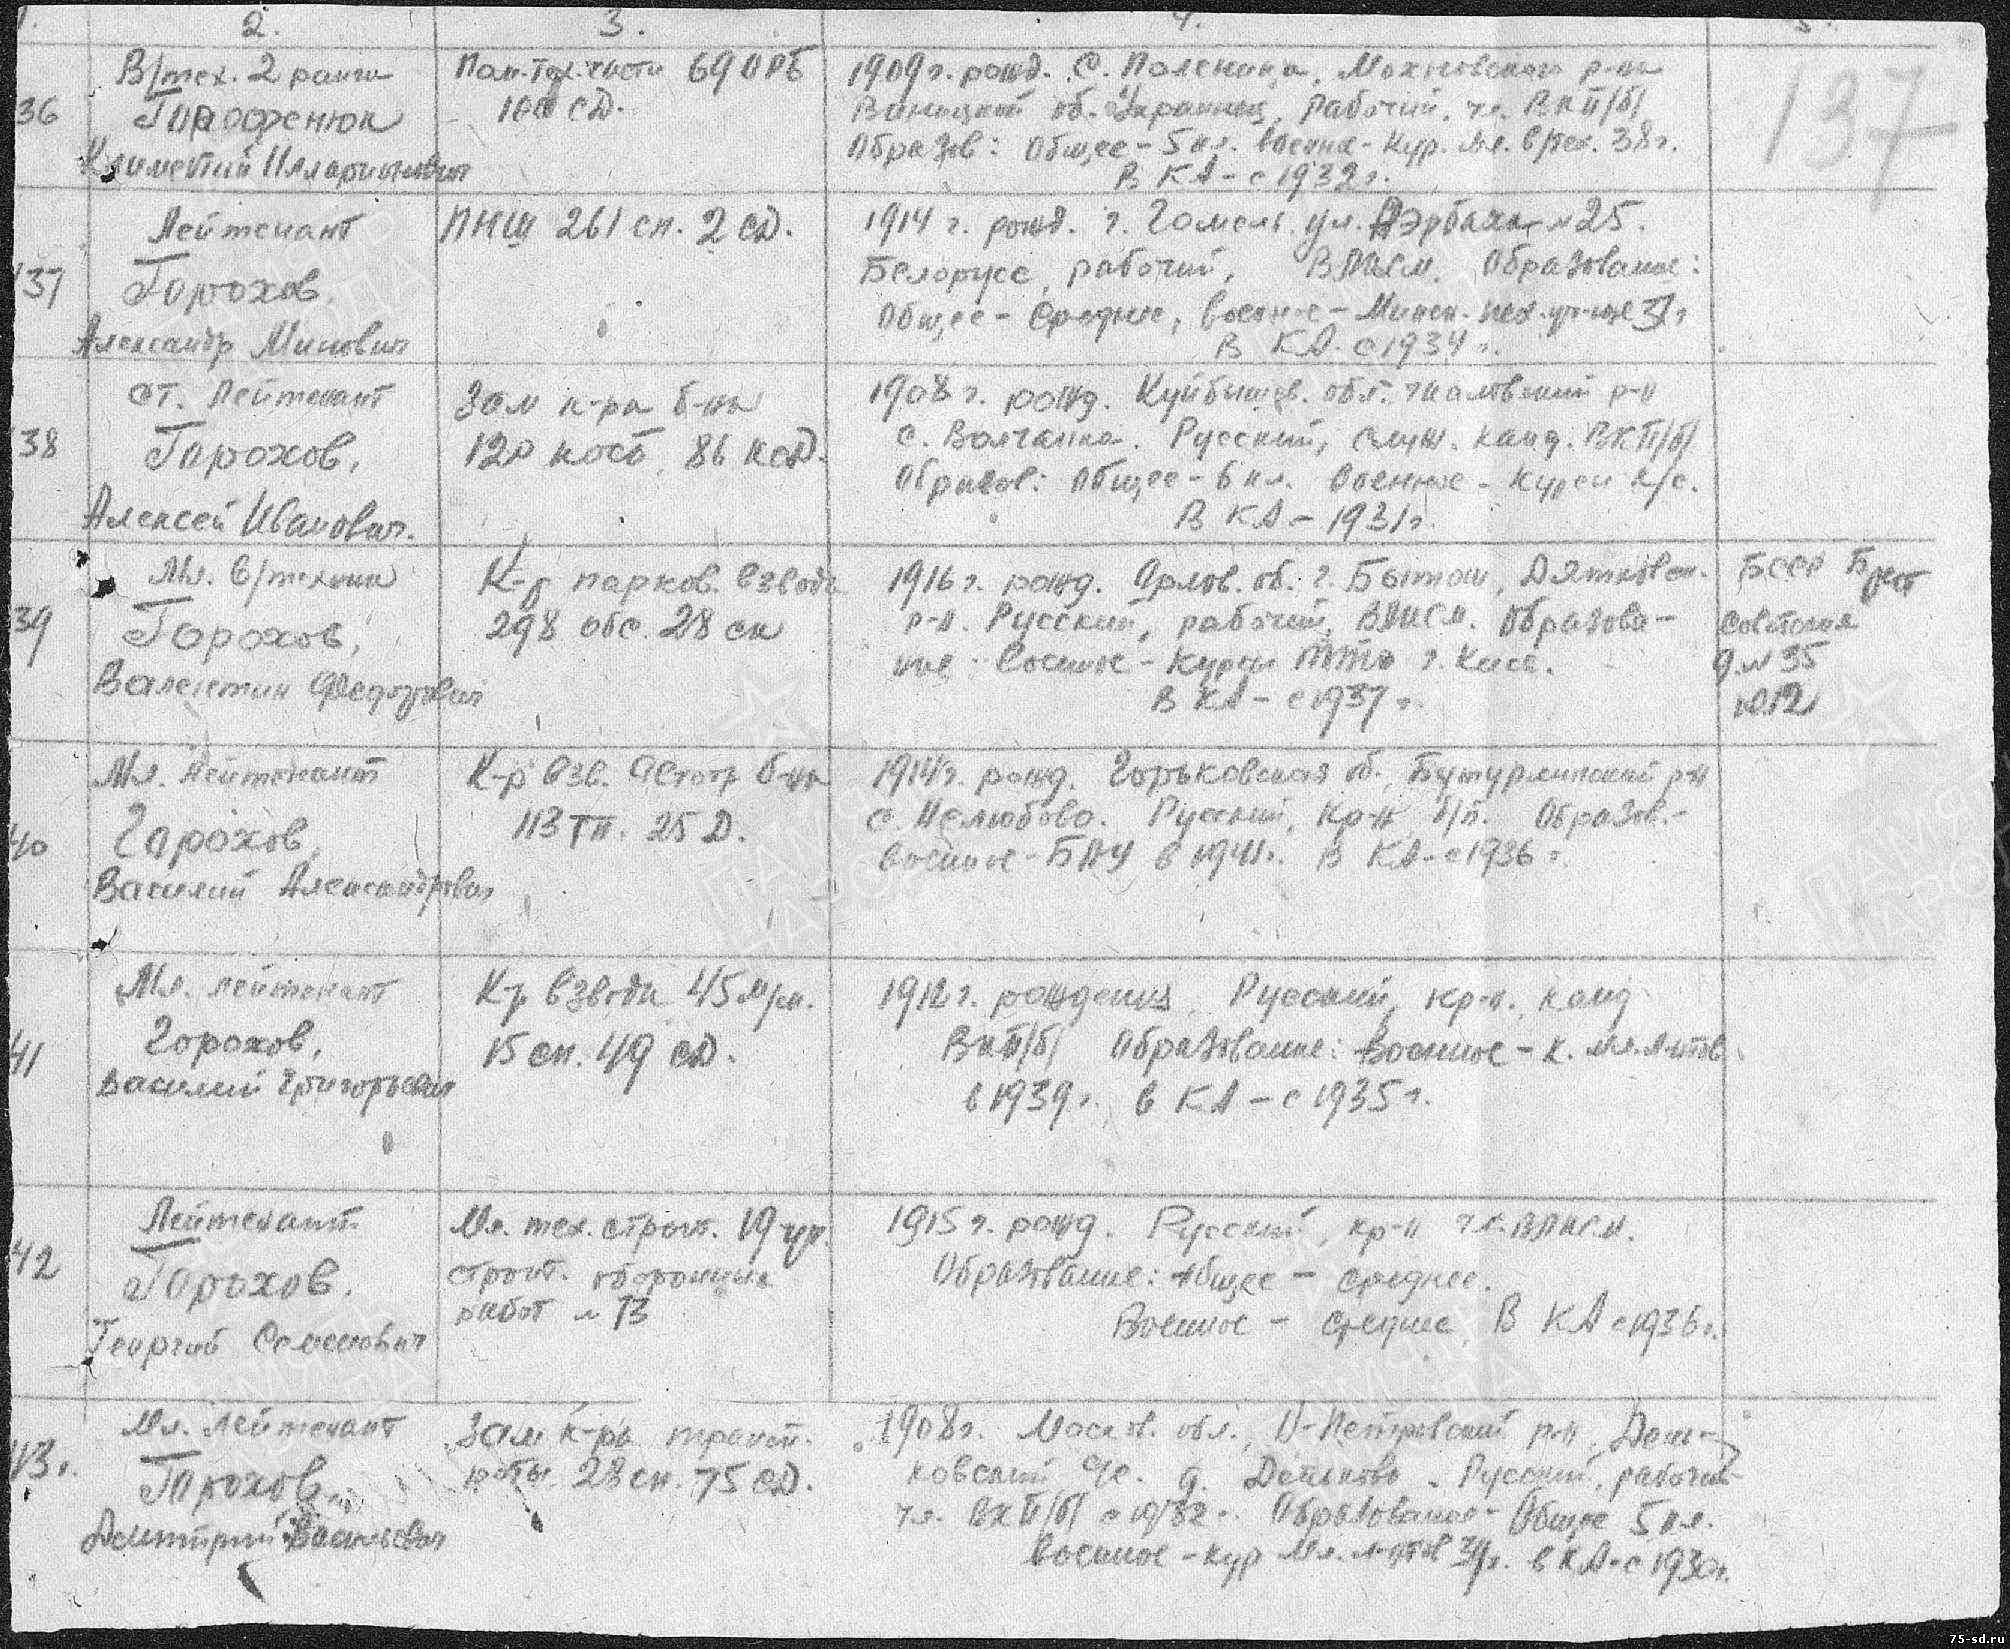 2. 3. 4. 5.
137
36
В/тех. 2 ранга
Гороф
Климентий Илларионович
Пом. тех. части 69 ОРБ
100 СД.
1909 г. рожд. с. Махновского р-на
Виницкой об. Украинец, рабочий, чл. ВКП/б/
Образов: Общее – 5 кл. военное – Кур. мл. в/тех. 38 г.
В КА – с 1932 г.
137
Лейтенант
Горохов
Александр Минович
ПНШ 261 сп. 2 СД.
1914 г. рожд. г. Гомель ул. № 25.
Белорусс, рабочий, ВЛКСМ. Образование:
Общее – Среднее, военное – Минск. пех. уч-ще 37 г
В КА – с 1934 г.
38
Ст. Лейтенант
Горохов,
Алексей Иванович.
Зам к-ра б-на
86 КСД.
1908 г. рожд. Куйбышев. обл. Чкаловский р-н
с. Волчанка. Русский, служ. канд. ВКП/б/
Образов: Общее – 6 кл. Военное – Курсы к/с.
В КА – 1931 г.
39
Мл. в/техник
Горохов,
Валентин Федорович
К-р парков. взвода
298 обс. 28 ск
1916 г. рожд. Орлов. об. г. Бытош, Дятковск.
р-н. Русский, рабочий, ВЛКСМ. Образова-
ние – Военное – Курсы г. Киев.
В КА – с 1937 г.
БССР Брест
Советская
д. № 35
40
Мл. Лейтенант
Горохов,
Василий Александрович
К-р взв. б-на
113 ТП. 25 Д.
1914 г. рожд. Горьковская об. Бутурлинский р-н
с. Нелюбово. Русский, кр-н, б/п. Образов.–
военное – БПУ в 1941 г. В КА – с 1936 г.
41
Мл. лейтенант
Горохов,
Василий Григорьевич
К-р взвода 45 м/м.
15 сп. 49 СД.
1912 г. рождения, Русский, кр-н, канд
ВКП/б/ Образование: Военное – К. мл. л-тов
в 1939 г. в КА – с 1935 г.
42
Лейтенант
Горохов.
Георгий Семенович
Мл. тех. строит. 19 уч.
строит. оборонных
работ № 73
1915 г. рожд. Русский, кр-н чл. ВЛКСМ.
Образование: общее – среднее.
Военное – среднее, В КА с 1936 г.
43 г.
Мл. лейтенант
Горохов,
Дмитрий Васильевич
Зам к-ра
роты 28 сп. 75 СД.
1908 г. Москов. обл., Н-Петровский р-н,
ковский с/с. д. Русский, рабочий
чл. ВКП/б/ с 1932 г. Образование – Общее 5 кл.
военное – кур мл. л-тов в КА – с 1930 г.
75-sd.ru